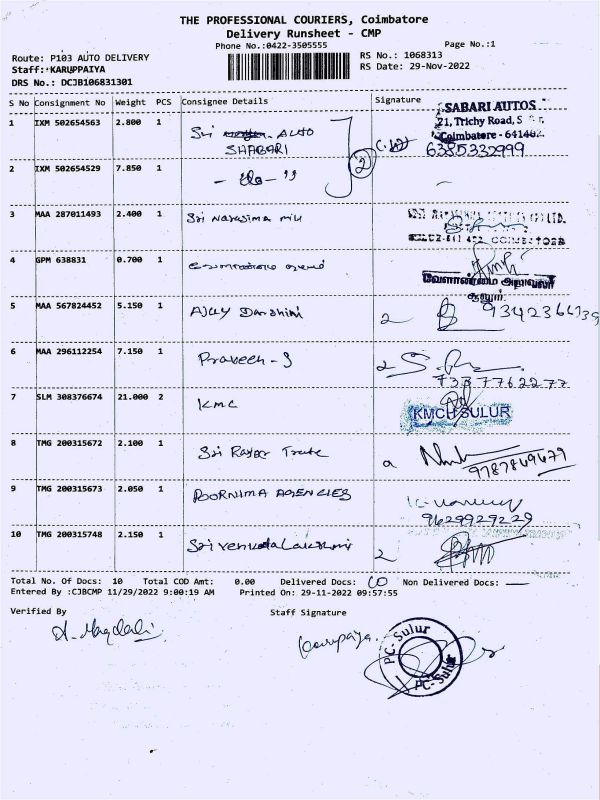 THE PROFESSIONAL COURIERS, Coimbatore
Delivery Runsheet - CMP
Phone No.:0422-3505555
Page No.:1
Route: P103 AUTO DELIVERY
RS No.: 1068313
Staff: KARUPPAIYA
RS Date: 29-Nov-2022
DRS No.: DCJB106831301
S No Consignment No Weight PCS Consignee Details Signature
1 IXM 502654563 2.800 1 Sri AUTO SHABARI
SABARI AUTOS
21, Trichy Road, S
Coimbatore - 641402.
6385332999
2 IXM 502654529 7.850 1 - do - "
3 MAA 287011493 2.400 1 Sri Narasima mill
4 GPM 638831 0.700 1
வேளாண்மை அலுவலர்
சூலூர்
5 MAA 567824452 5.150 1 Ajay Darshini
6 MAA 296112254 7.150 1 Praveen - S
7337762277
7 SLM 308376674 21.000 2 KMC
KMCH SULUR
8 TMG 200315672 2.100 1 Sri
9787869679
9 TMG 200315673 2.050 1 POORNIMA AGENCIES
9629929229
10 TMG 200315748 2.150 1 Sri venkatalakshmi 2
Total No. Of Docs: 10 Total COD Amt: 0.00 Delivered Docs: 10 Non Delivered Docs:
Entered By :CJBCMP 11/29/2022 9:00:19 AM Printed On: 29-11-2022 09:57:55
Verified By Staff Signature
PC-Sulur
PC-Sulur